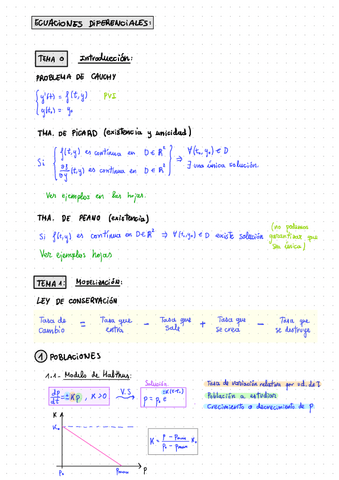 ECUACIONES DIFERENCIALES:
TEMA 0 Introducción:
PROBLEMA DE CAUCHY
{ y'(t) = f(t,y) PVI
y(t₀) = y₀
TMA. DE PICARD (existencia y unicidad)
Si { f(t,y) es continua en D∈ℝ² ⇒ ∀(t₀,y₀) ∈ D
∂f/∂y (t,y) es continua en D∈ℝ² ∃ una única solución.
Ver ejemplos en las hojas.
TMA. DE PEANO (existencia)
Si f(t,y) es continua en D∈ℝ² ⇒ ∀(t₀,y₀) ∈ D existe solución (no podemos garantizar que sea única)
Ver ejemplos hojas
TEMA 1: Modelización:
LEY DE CONSERVACIÓN
Tasa de cambio = Tasa que entra − Tasa que sale + Tasa que se crea − Tasa que se destruye
1 POBLACIONES
1.1- Modelo de Malthus:
dp/dt = ±Kp, K>0 V.S → Solución
p = p₀ e^±K(t-t₀)
Tasa de variación relativa por ud. de t
Población a estudiar
Crecimiento o decrecimiento de p
K
K₀
K = (p − pmax)/(p₀ − pmax) K₀
p₀ pmax p